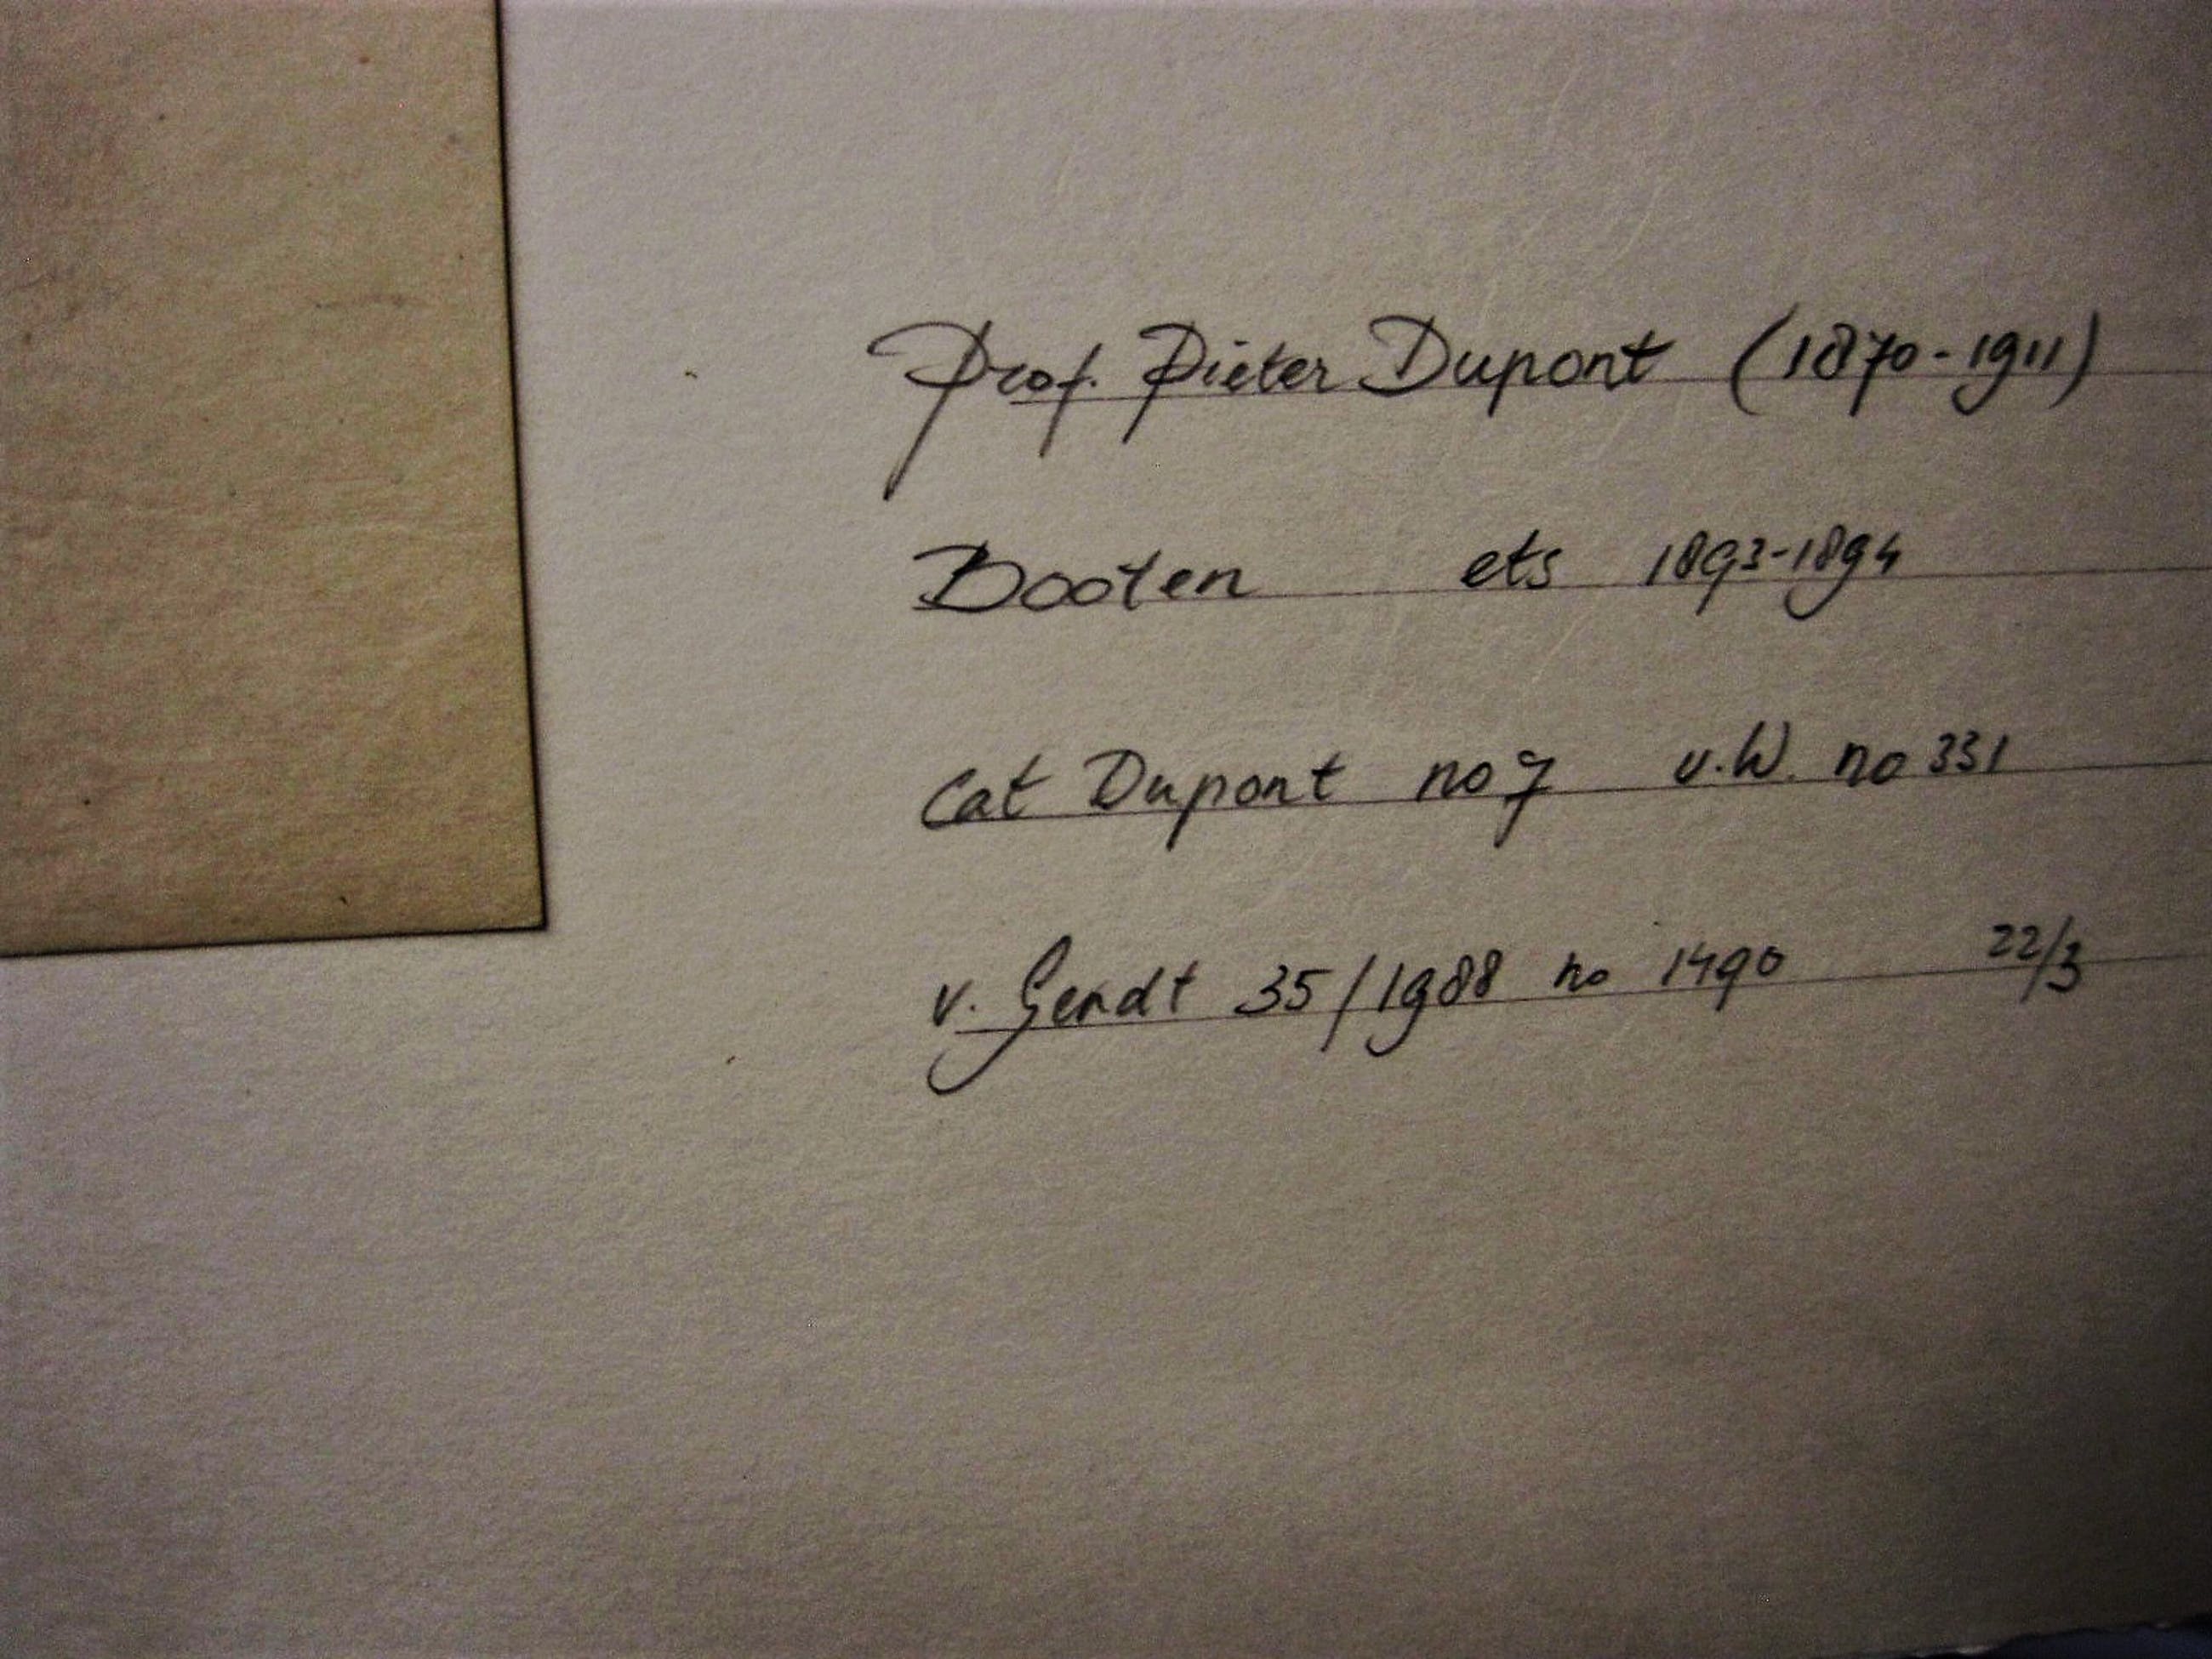 Prof. Pieter Dupont (1870-1911)
Booten ets 1893-1894
Cat Dupont no 7 v.W. no 331
v. Gendt 35/1988 no 1490 22/3